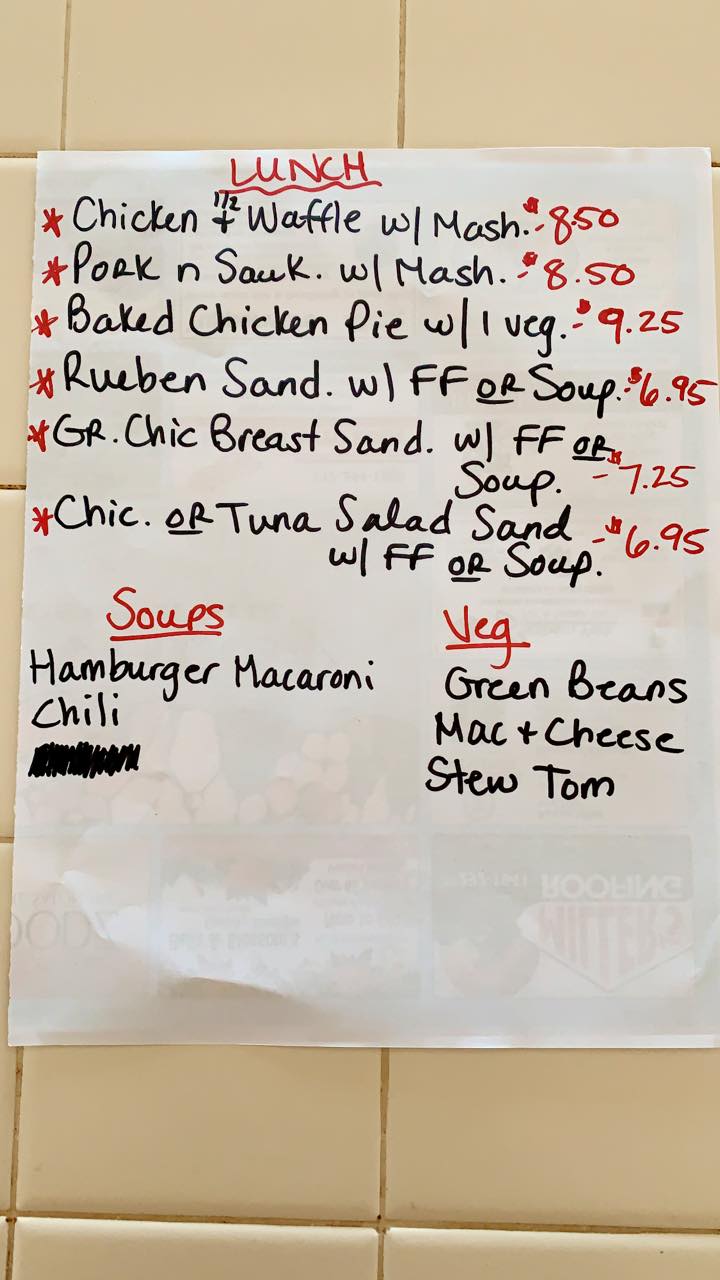 LUNCH
* Chicken + 1/2 Waffle w/ Mash. - $8.50
* Pork n Sauk. w/ Mash. - $8.50
* Baked Chicken Pie w/ 1 veg. - $9.25
* Rueben Sand. w/ FF OR Soup. - $6.95
* GR. Chic Breast Sand. w/ FF OR
Soup. - $7.25
* Chic. OR Tuna Salad Sand - $6.95
w/ FF OR Soup.
Soups
Hamburger Macaroni
Chili
Veg
Green Beans
Mac + Cheese
Stew Tom
ROOFING
MILLER'S